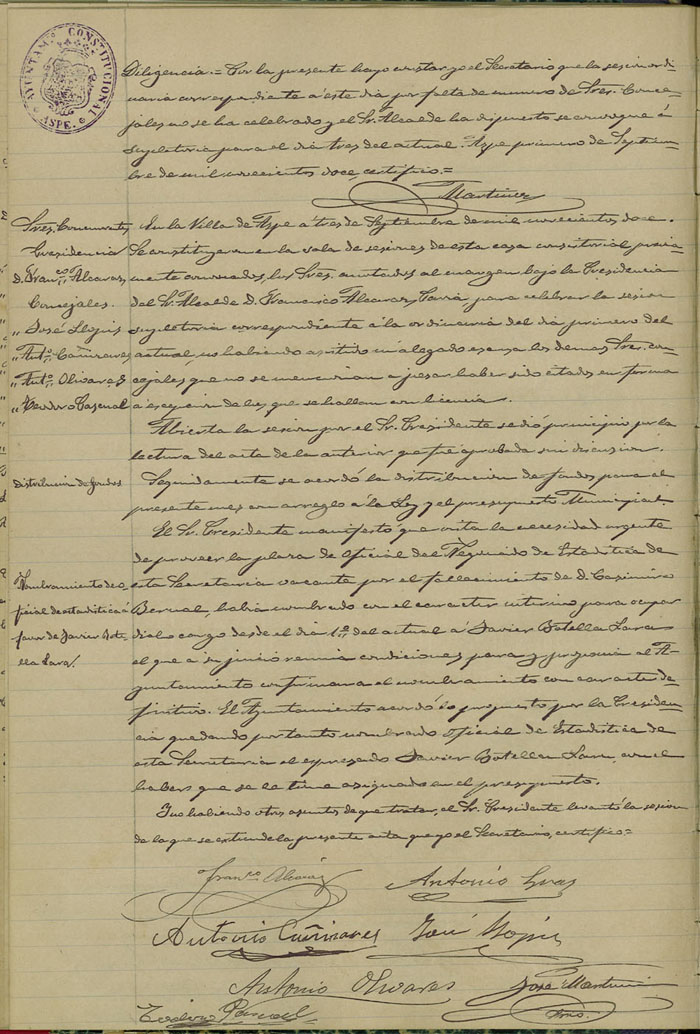 AYUNTAMº CONSTITUCIONAL
ASPE.
Diligencia.= Por la presente hago constar yo el Secretario que la sesion ordi-
naria correspondiente a este dia por falta de numero de Sres. Conce-
jales no se ha celebrado y el Sr. Alcalde ha dispuesto se convoque á
supletoria para el dia tres del actual. Aspe primero de Septiem-
bre de mil novecientos doce, certifico.=
Martinez
Sres. Concurrentes
Presidencia
D. Franco. Alcaraz
Concejales.
" José Llopis
" Anto. Cañizares
" Anto. Olivares
" Teodoro Pascual
En la Villa de Aspe á tres de Septiembre de mil novecientos doce.
Se constituyeron en la sala de sesiones de esta casa consistorial, previa-
mente convocados, los Sres. anotados al margen bajo la Presidencia
del Sr. Alcalde D. Francisco Alcaraz para celebrar la sesion
supletoria correspondiente á la ordinaria del dia primero del
actual, no habiendo asistido ni alegado escusa los demas Sres. con-
cejales que no se mencionan a pesar haber sido citados en forma
á escepcion de los que se hallan con licencia.
Abierta la sesion por el Sr. Presidente se dió principio por la
lectura del acta de la anterior que fue aprobada sin discusion.
Distribucion de fondos
Seguidamente se acordó la distribucion de fondos para el
presente mes con arreglo á la Ley y el presupuesto Municipal.
El Sr. Presidente manifestó que vista la necesidad urgente
de proveer la plaza de Oficial del Negociado de Estadistica de
Nombramiento de o-
ficial de estadistica á
favor de Javier Bote-
lla Lara.
esta Secretaria vacante por el fallecimiento de D. Casimiro
Bernal, habia nombrado con el caracter interino para ocupar
dicho cargo desde el dia 1º. del actual á Javier Botella Lara
el que á su juicio reunia condiciones para y proponia al A-
yuntamiento confirmara el nombramiento con caracter de-
finitivo. El Ayuntamiento acordó lo propuesto por la Presiden-
cia quedando por tanto nombrado oficial de Estadistica de
esta Secretaria el expresado Javier Botella Lara, con el
haber que se le tiene asignado en el presupuesto.
Y no habiendo otros asuntos de que tratar, el Sr. Presidente levantó la sesion
de la que se extiende la presente acta que yo el Secretario, certifico=
Franco Alcaraz
Antonio
Antonio Cañizares
José Llopis
Antonio Olivares
José Martinez
Srio.
Teodoro Pascual